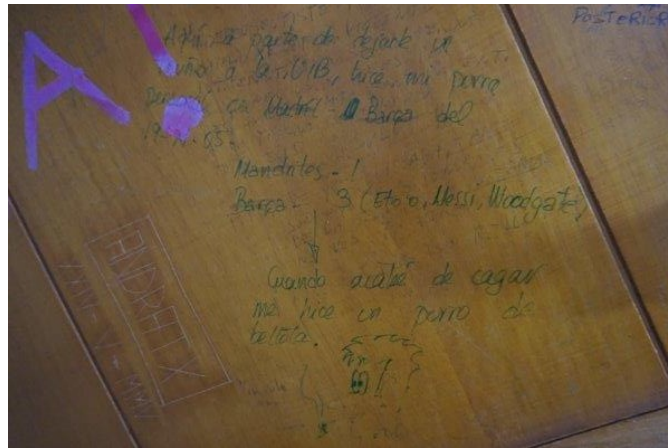 A!
POSTERIOR
Aquí, a parte de dejarle un
a la UIB, hice mi porra
del Madrid - Barça del
19-11-05.
Mandriles - 1
Barça - 3 (Eto'o, Messi, Woodgate)
Cuando acabé de cagar
me hice un porro de
bellota.
ANDRATX